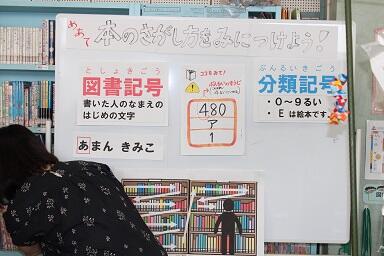 めあて
本のさがし方をみにつけよう!
としょきごう
図書記号
書いた人のなまえの
はじめの文字
あまん きみこ
ココをみて!
480
ア
1
ぶんるいきごう
分類記号
・0～9るい
・Eは絵本です。